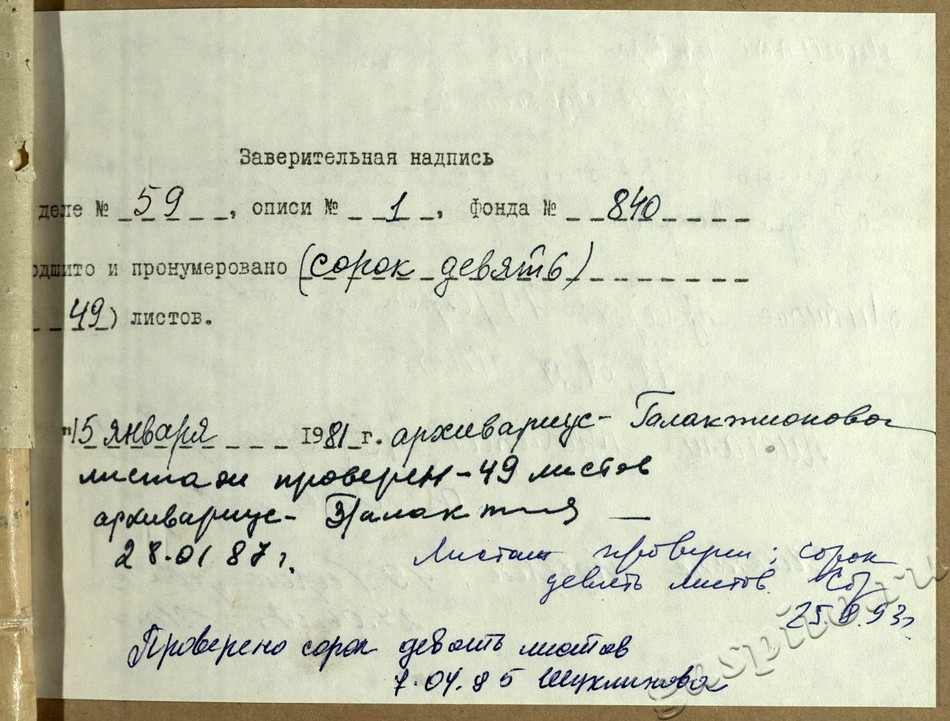 Заверительная надпись
деле № 59, описи № 1, фонда № 840
одшито и пронумеровано (сорок девять)
49) листов.
"15 января 1981 г. архивариус - Галактионова
листаж проверен - 49 листов
архивариус -
28.01 87 г.
Листаж проверен: сорок
девять листов.
93г.
Проверено сорок девять листов
7.04.85 Шуклинова
gaspiko.ru